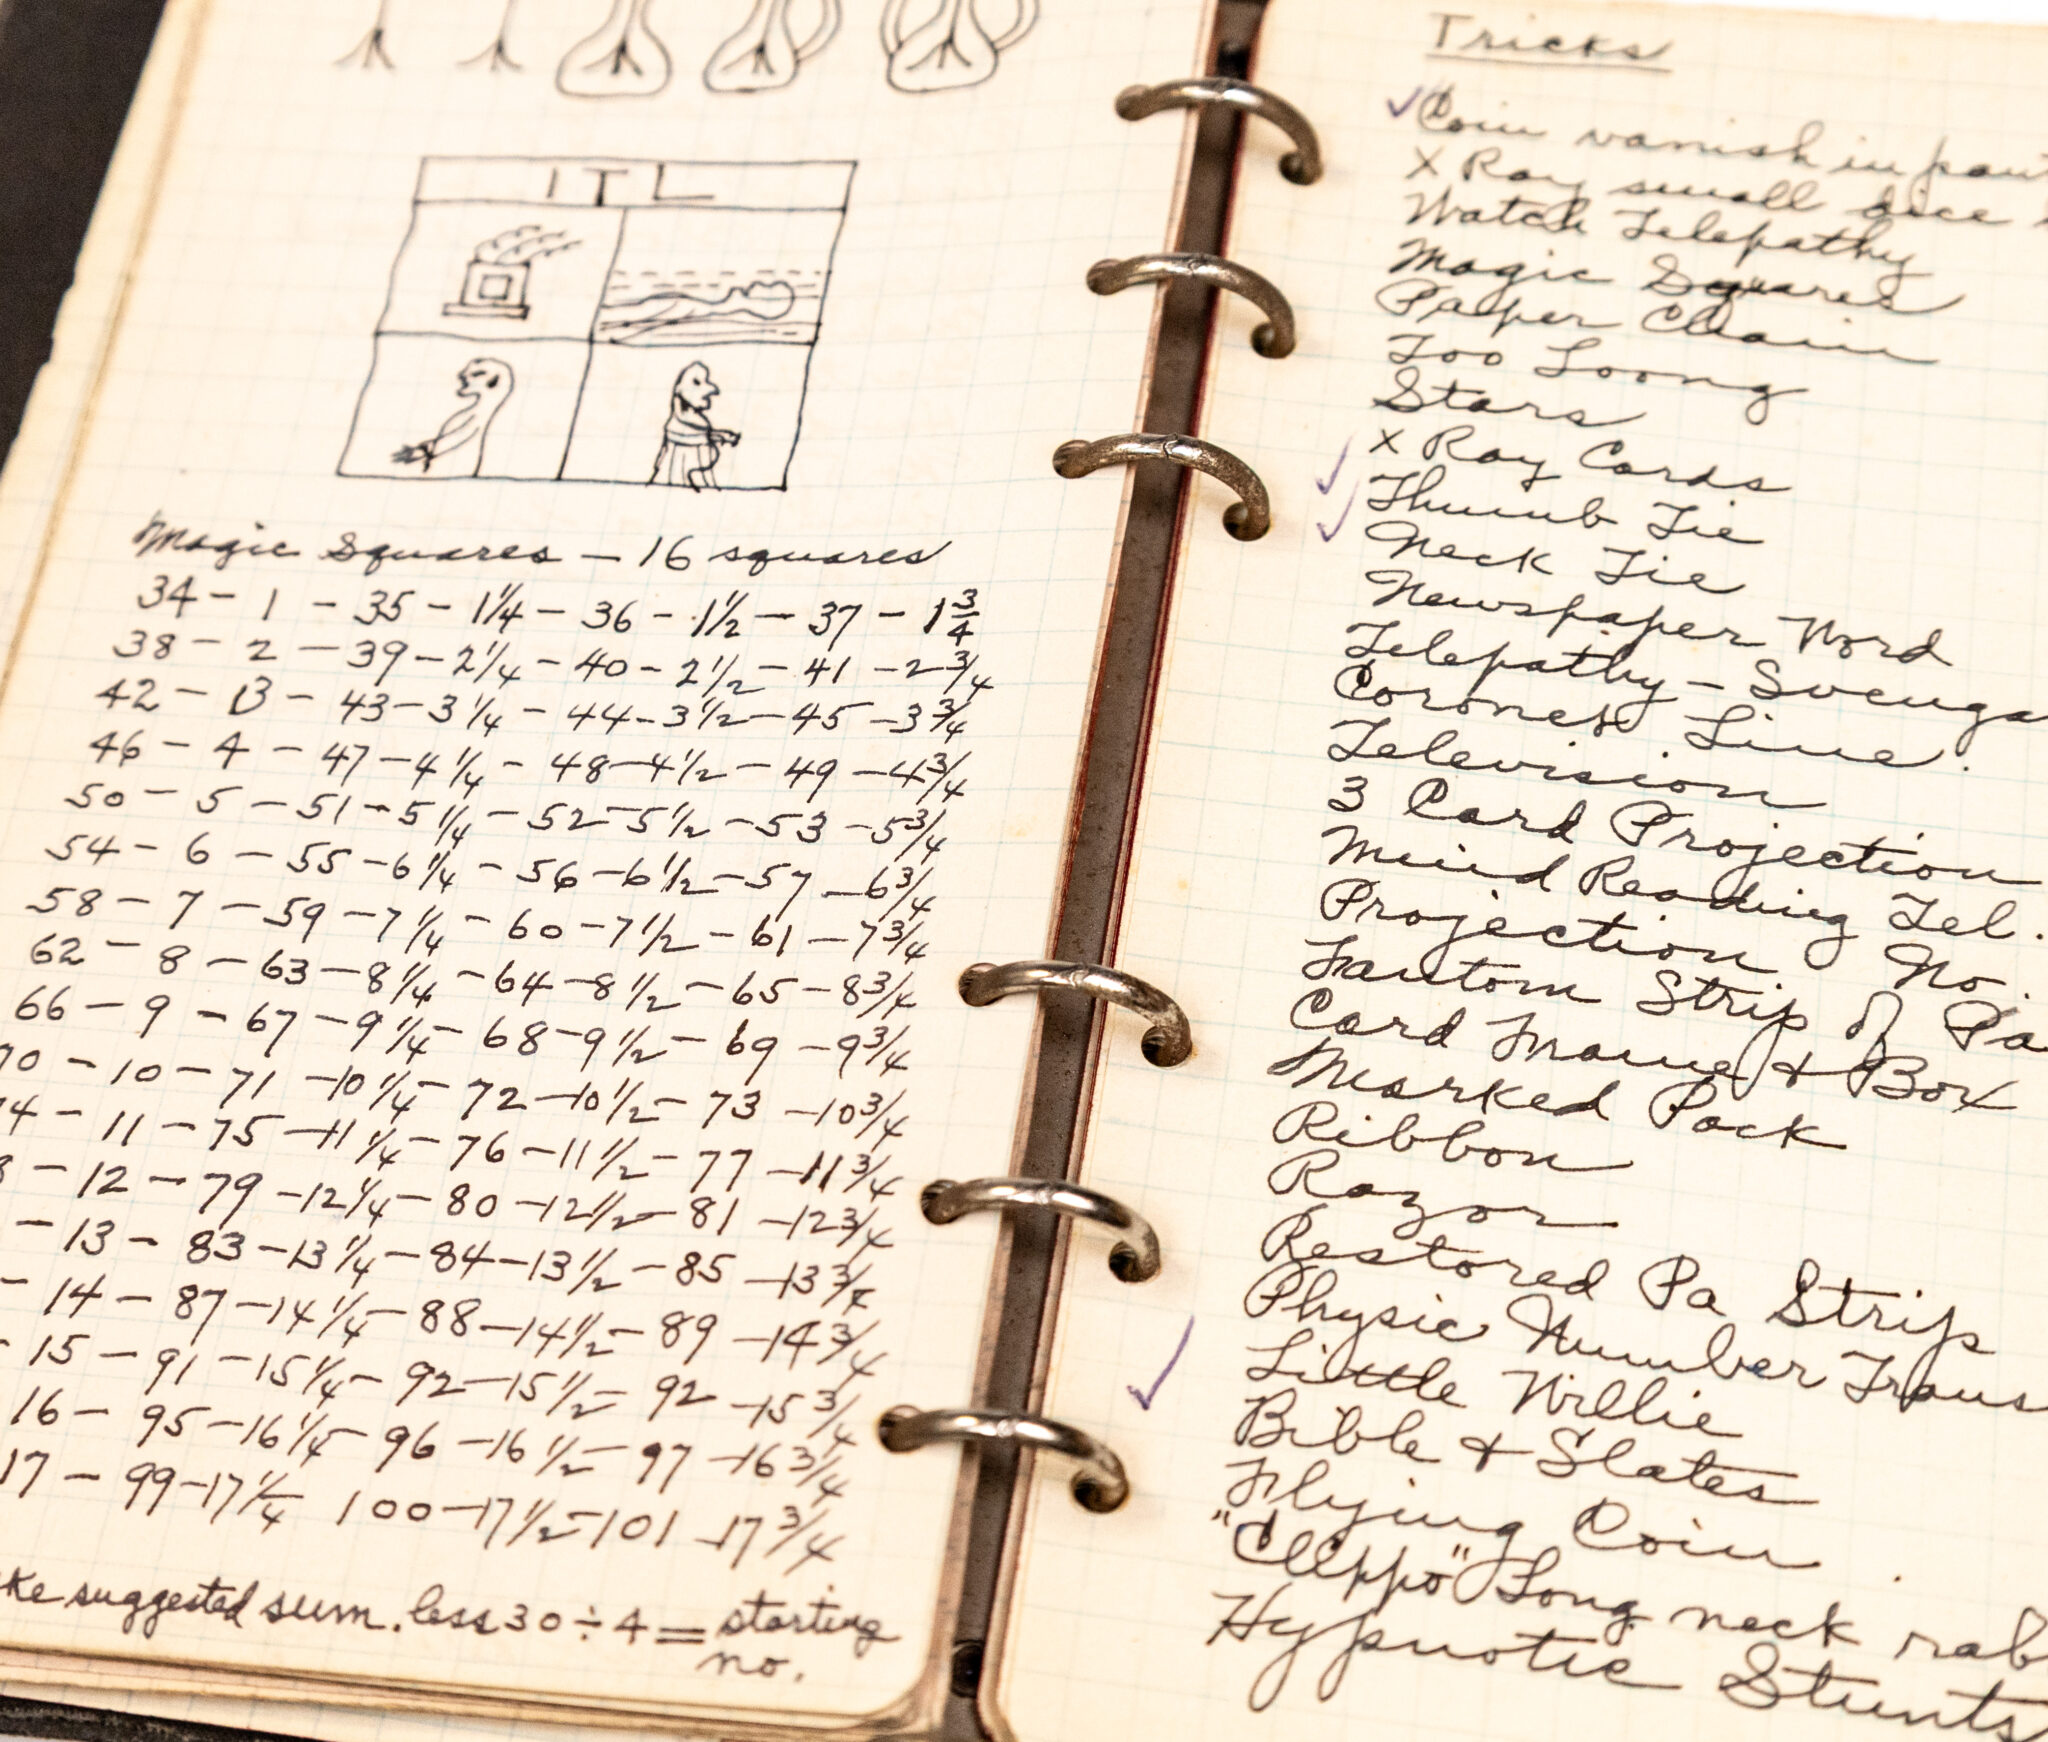 ITL
Magic Squares - 16 squares
34 - 1 - 35 - 1 1/4 - 36 - 1 1/2 - 37 - 1 3/4
38 - 2 - 39 - 2 1/4 - 40 - 2 1/2 - 41 - 2 3/4
42 - 3 - 43 - 3 1/4 - 44 - 3 1/2 - 45 - 3 3/4
46 - 4 - 47 - 4 1/4 - 48 - 4 1/2 - 49 - 4 3/4
50 - 5 - 51 - 5 1/4 - 52 - 5 1/2 - 53 - 5 3/4
54 - 6 - 55 - 6 1/4 - 56 - 6 1/2 - 57 - 6 3/4
58 - 7 - 59 - 7 1/4 - 60 - 7 1/2 - 61 - 7 3/4
62 - 8 - 63 - 8 1/4 - 64 - 8 1/2 - 65 - 8 3/4
66 - 9 - 67 - 9 1/4 - 68 - 9 1/2 - 69 - 9 3/4
0 - 10 - 71 - 10 1/4 - 72 - 10 1/2 - 73 - 10 3/4
4 - 11 - 75 - 11 1/4 - 76 - 11 1/2 - 77 - 11 3/4
- 12 - 79 - 12 1/4 - 80 - 12 1/2 - 81 - 12 3/4
- 13 - 83 - 13 1/4 - 84 - 13 1/2 - 85 - 13 3/4
- 14 - 87 - 14 1/4 - 88 - 14 1/2 - 89 - 14 3/4
- 15 - 91 - 15 1/4 - 92 - 15 1/2 - 92 - 15 3/4
16 - 95 - 16 1/4 - 96 - 16 1/2 - 97 - 16 3/4
17 - 99 - 17 1/4 100 - 17 1/2 - 101 - 17 3/4
ke suggested sum. less 30 ÷ 4 = starting
no.
Tricks
✓ Coin vanish in
X Ray small dice
Watch Telepathy
Magic Squares
Paper Chain
Too Loong
Stars
X Ray Cards
✓ Thumb Tie
✓ Neck Tie
Newspaper Word
Telepathy - Svenga
Coroner Line.
Television
3 Card Projection
Mind Reading Tel.
Projection No.
Fantom Strip of Pa
Card Frame & Box
Marked Pack
Ribbon
Razor
Restored Pa Strip
Physic Number Trans
✓ Little Willie
Bible & Slates
Flying Coin
"Clippo" Long neck rab
Hypnotic Stunts